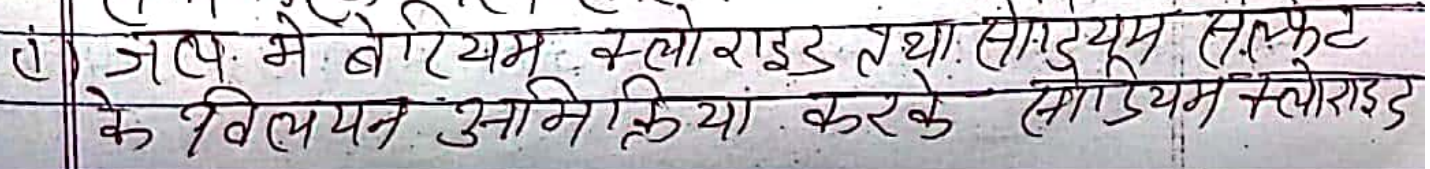 (i) जल में बेरियम क्लोराइड तथा सोडियम सल्फेट
के विलयन अभिक्रिया करके सोडियम क्लोराइड